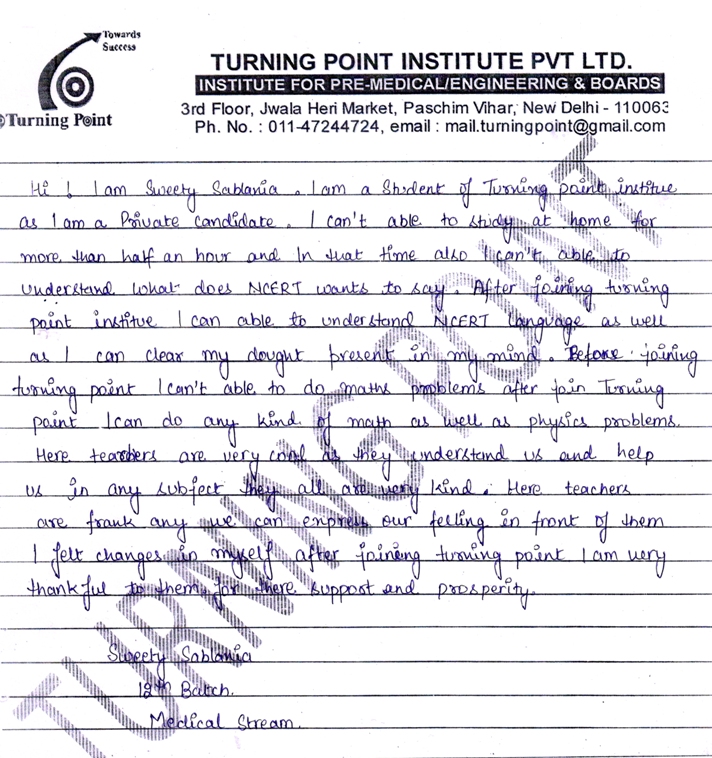 Towards
Success
Turning Point
TURNING POINT INSTITUTE PVT LTD.
INSTITUTE FOR PRE-MEDICAL/ENGINEERING & BOARDS
3rd Floor, Jwala Heri Market, Paschim Vihar, New Delhi - 110063
Ph. No. : 011-47244724, email : mail.turningpoint@gmail.com
Hi ! I am Sweety Sablania. I am a Student of Turning point institue
as I am a Private candidate. I can't able to study at home for
more than half an hour and In that time also I can't able to
understand what does NCERT wants to say. After joining turning
point institue I can able to understand NCERT language as well
as I can clear my dought present in my mind. Before joining
turning point I can't able to do maths problems after join Turning
point I can do any kind of math as well as physics problems.
Here teachers are very cool as they understand us and help
us in any subject they all are very kind. Here teachers
are frank any we can express our felling in front of them
I felt changes in myself after joining turning point I am very
thankful to them for there support and prosperity.
Sweety Sablania
12th Batch.
Medical Stream.
TURNING POINT